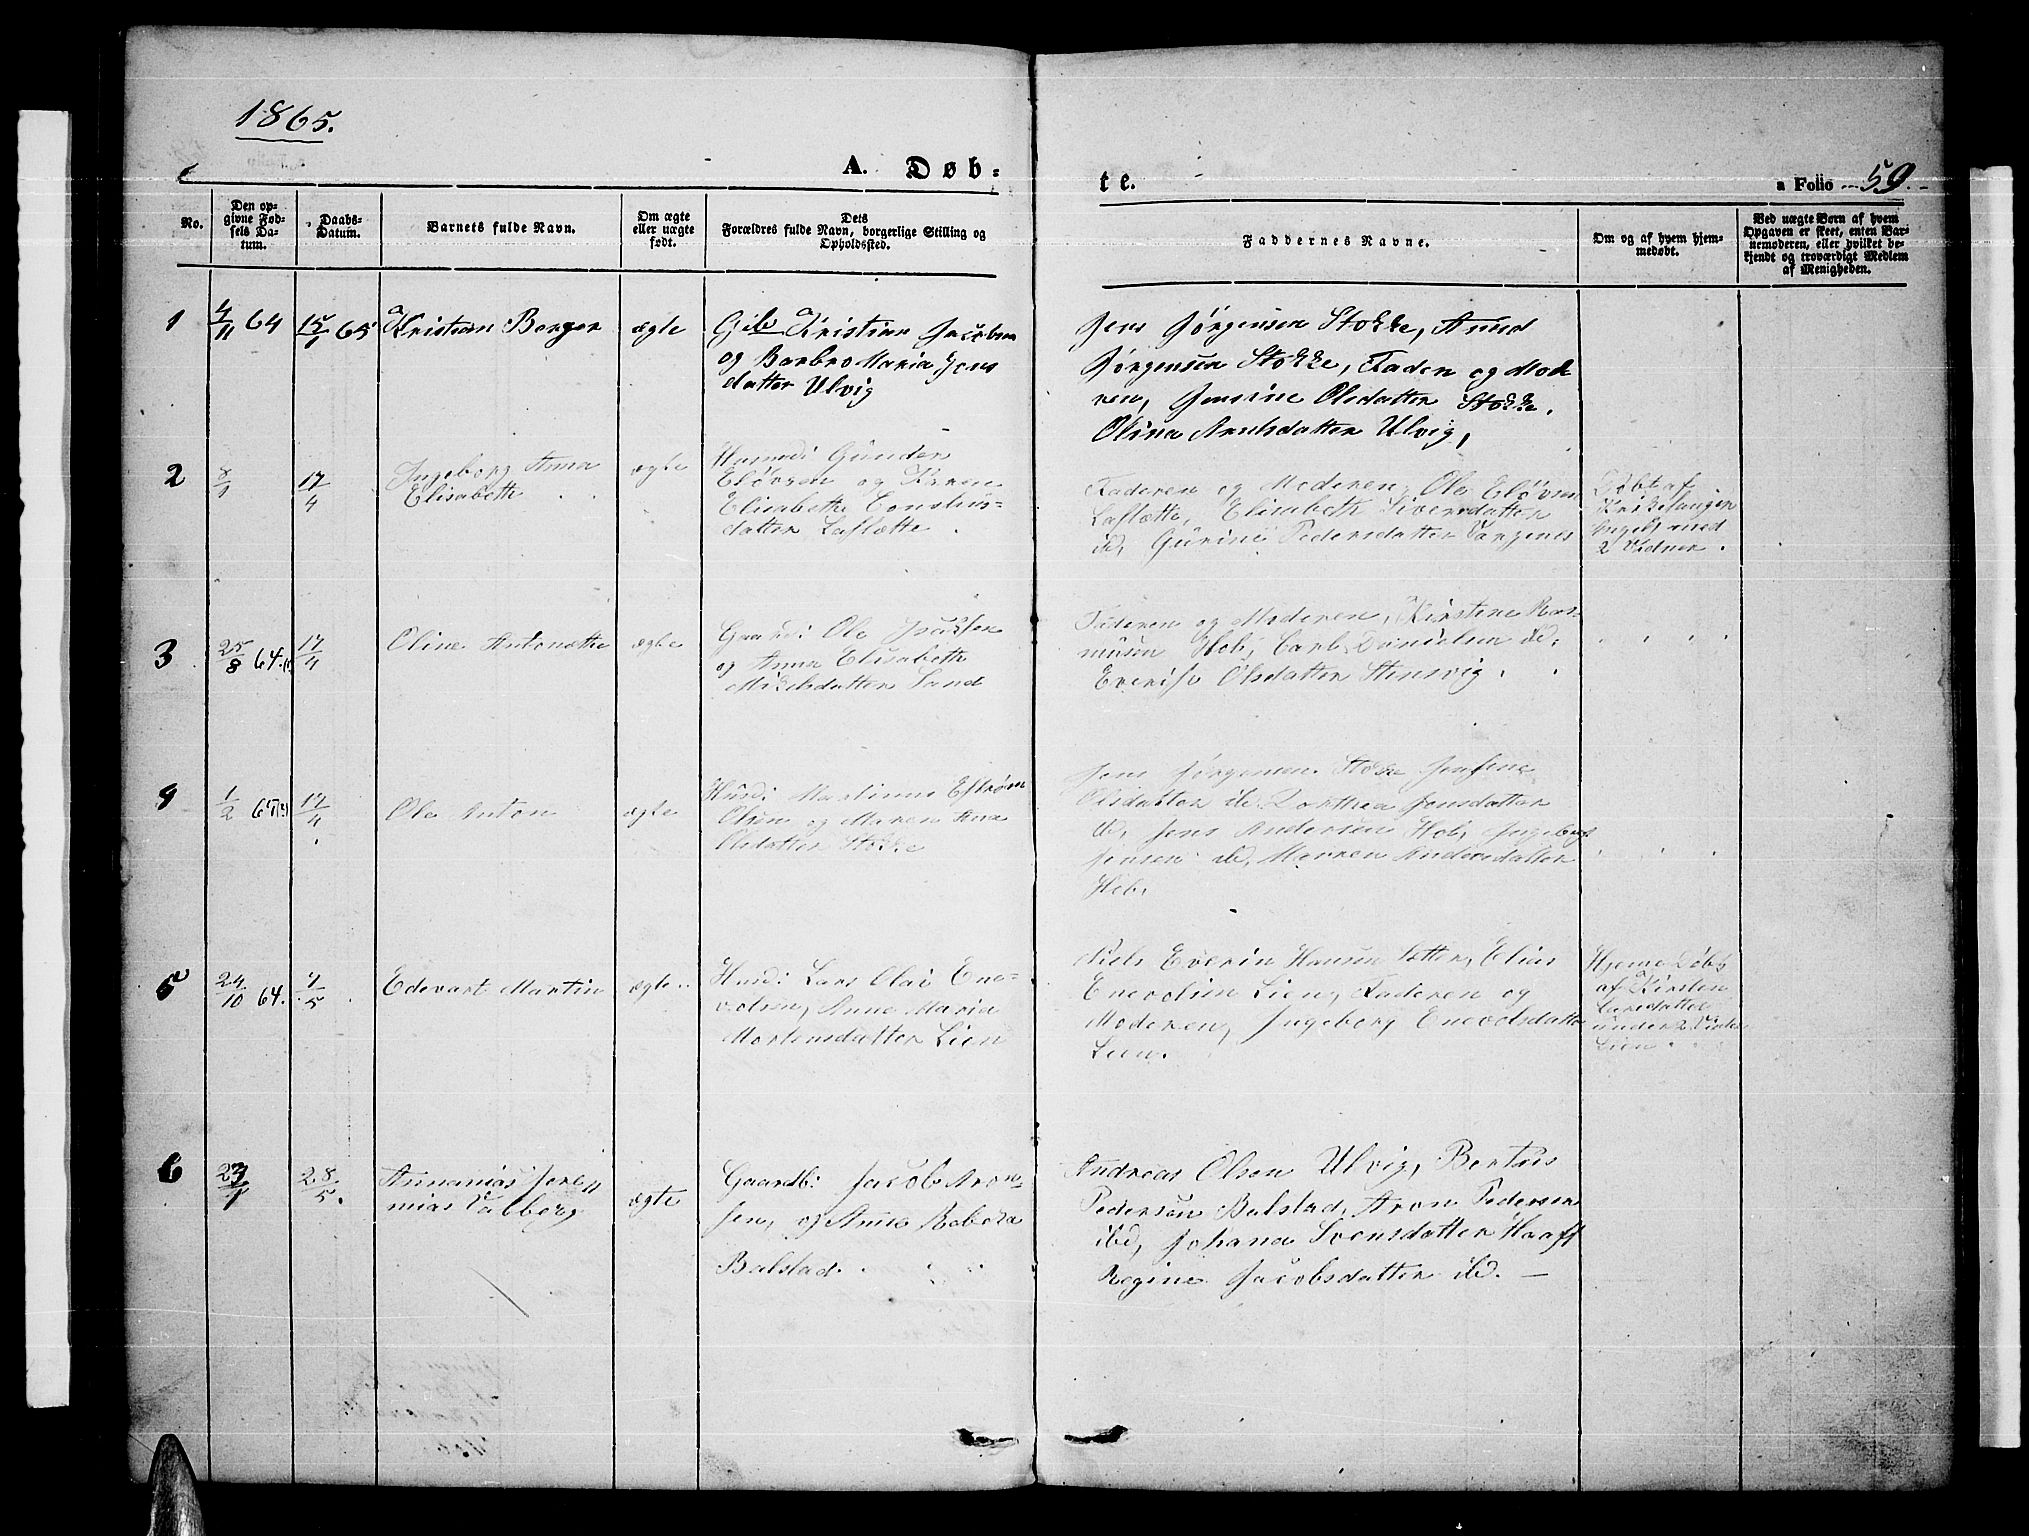 1865.
A. Døb-
te.
a Folio 59.
No.
Den op-
givne Fød-
sels Da-
tum.
Daabs-
Datum.
Barnets fulde Navn.
Om ægte
eller uægte
født.
Dets
Forældres fulde Navn, borgerlige Stilling og
Opholdssted.
Faddernes Navne.
Om og af hvem hjem-
medøbt.
Ved uægte Børn af hvem
Opgaven er skeet, enten Bar-
nemoderen, eller hvilket be-
kjendt og troværdigt Medlem
af Menigheden.
1
4/11 64
15/1 65
Kristian Berger
ægte
Kristian Jacobsen
og Barbro Maria Jens
datter Ulvig
Jens Jørgensen Stokke, Anud
Jørgensen Stokke, Faderen og Mod-
ren, Jensine Olsdatter Stokke.
Olina Arntsdatter Ulvig,
2
8/1
17/4
Ingeborg Anna
Elisabeth
ægte
Husmd: Gunder
Eløvsen og Karen
Elisabethe
datter Laslætte.
Faderen og Moderen, Ole Eløvsen
Laslætte, Elisabeth Siversdatter
ib, Gurine Pedersdatter
Døbt af
med
2 Vidner.
3
25/8 64.
17/4
Oline Antonette
ægte
Gaardb: Ole Isaksen
og Anna Elisabeth
Mikelsdatter Sand
Faderen og Moderen, Kirstine Ras-
musen Hob, Carl Danielsen ib,
Olsdatter Stensvig.
4
1/2
17/4
Ole Anton
ægte
Husd: Martinus Estrøm
Olsen og Maren Ana
Olsdatter Stokke
Jens Jørgensen Stokke Jensine
Olsdatter ib Dorthea Jensdatter
ib, Jens Andersen Hob, Ingeborg
Jensen ib, Maren Andersdatter
Hob.
5
24/10 64.
7/5
Edevart Martin
ægte
Husd: Lars Olai Ene-
voldsen, Anne Maria
Mortensdatter Lien
Niels Everin Hansen Sætter, Elias
Enevolsen Lien, Faderen og
Moderen, Ingeborg Enevolsdatter
Lien.
Hjeme Døbt
af Kirsten
Larsdatter
under 2 Vidner
Lien.
6
23/1
28/5.
Annanias Jere
mias Valberg
ægte
Gaardb: Jacob Aron-
sen, og Anne Rebeka
Balstad.
Andreas Olsen Ulvig, Bertus
Pedersen Balstad, Aron Pedersen
ibd, Johana Svensdatter Haaf
Regine Jacobsdatter ibd. —